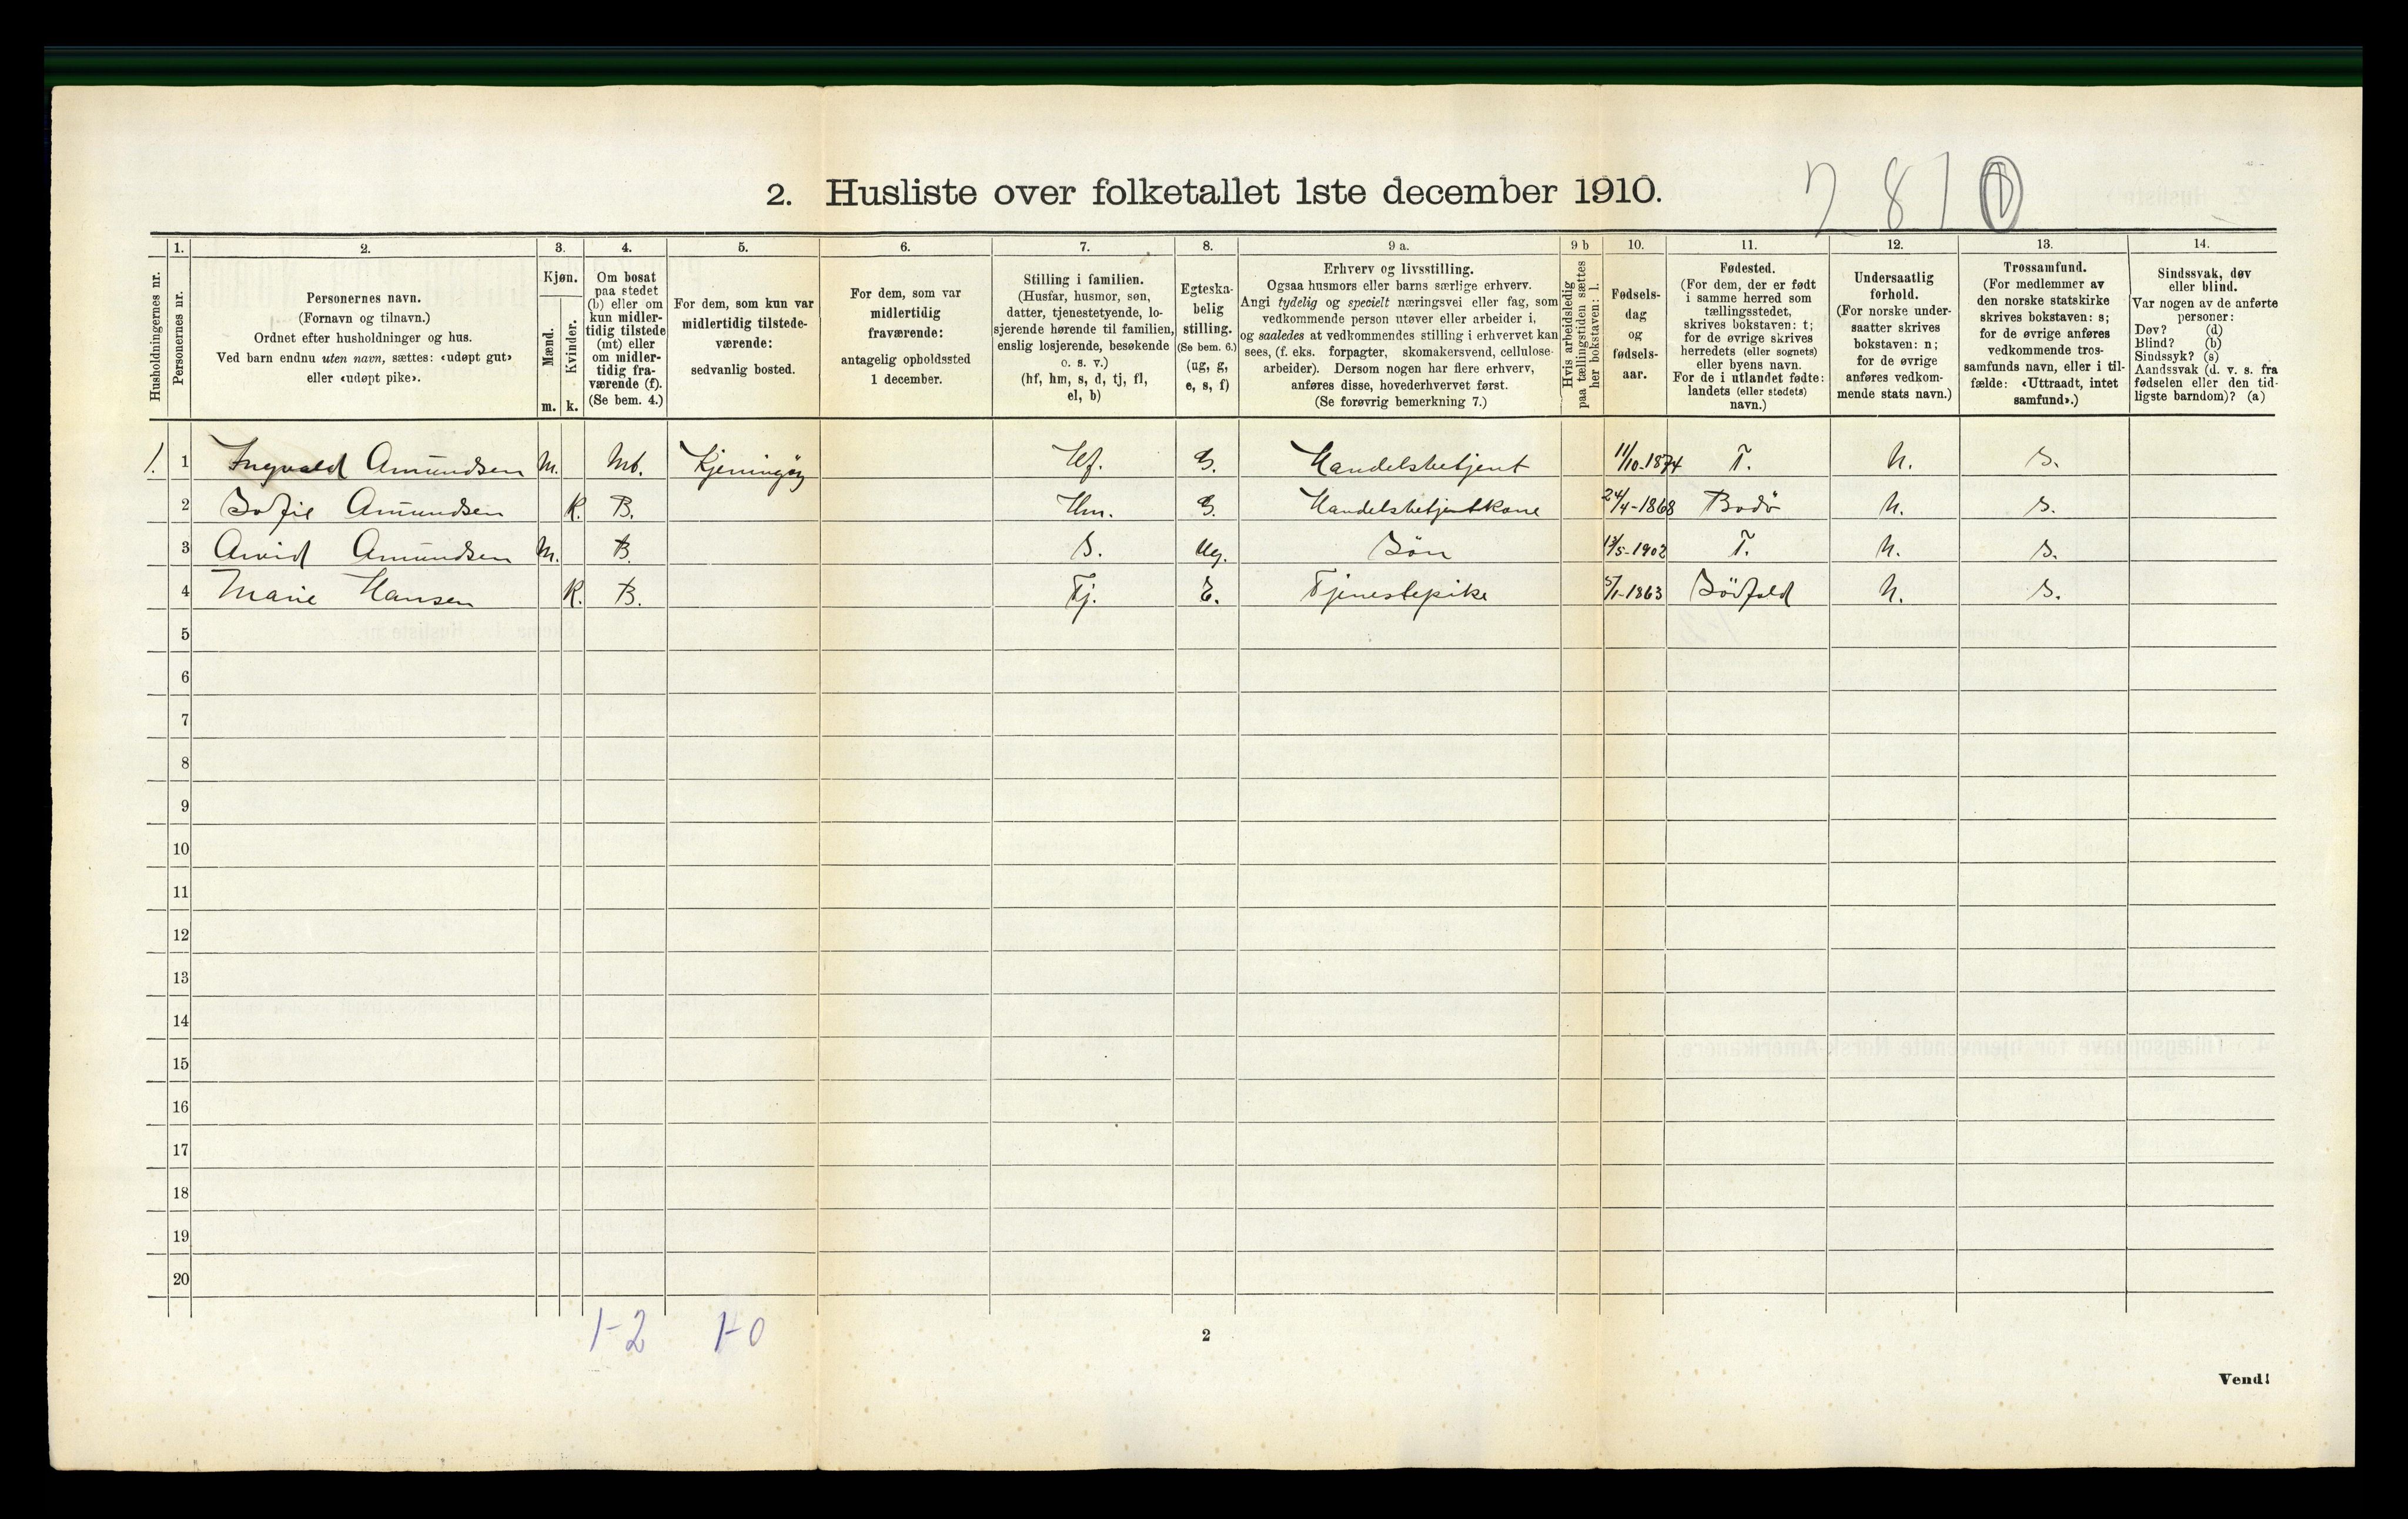 2. Husliste over folketallet 1ste december 1910.
2 8 1 0
Husholdningernes nr.
1.
Personernes nr.
2.
Personernes navn.
(Fornavn og tilnavn.)
Ordnet efter husholdninger og hus.
Ved barn endnu uten navn, sættes: «udøpt gut»
eller «udøpt pike».
3.
Kjøn.
Mænd.
Kvinder.
m. k.
4.
Om bosat
paa stedet
(b) eller om
kun midler-
tidig tilstede
(mt) eller
om midler-
tidig fra-
værende (f).
(Se bem. 4.)
5.
For dem, som kun var
midlertidig tilstede-
værende:
sedvanlig bosted.
6.
For dem, som var
midlertidig
fraværende:
antagelig opholdssted
1 december.
7.
Stilling i familien.
(Husfar, husmor, søn,
datter, tjenestetyende, lo-
sjerende hørende til familien,
enslig losjerende, besøkende
o. s. v.)
(hf, hm, s, d, tj, fl,
el, b)
8.
Egteska-
belig
stilling.
(Se bem. 6.)
(ug, g,
e, s, f)
9 a.
Erhverv og livsstilling.
Ogsaa husmors eller barns særlige erhverv.
Angi tydelig og specielt næringsvei eller fag, som
vedkommende person utøver eller arbeider i,
og saaledes at vedkommendes stilling i erhvervet kan
sees, (f. eks. forpagter, skomakersvend, cellulose-
arbeider). Dersom nogen har flere erhverv,
anføres disse, hovederhvervet først.
(Se forøvrig bemerkning 7.)
9 b
Hvis arbeidsledig
paa tællingstiden sættes
her bokstaven: l.
10.
Fødsels-
dag
og
fødsels-
aar.
11.
Fødested.
(For dem, der er født
i samme herred som
tællingsstedet,
skrives bokstaven: t;
for de øvrige skrives
herredets (eller sognets)
eller byens navn.
For de i utlandet fødte:
landets (eller stedets)
navn.)
12.
Undersaatlig
forhold.
(For norske under-
saatter skrives
bokstaven: n;
for de øvrige
anføres vedkom-
mende stats navn.)
13.
Trossamfund.
(For medlemmer av
den norske statskirke
skrives bokstaven: s;
for de øvrige anføres
vedkommende tros-
samfunds navn, eller i til-
fælde: «Uttraadt, intet
samfund».)
14.
Sindssvak, døv
eller blind.
Var nogen av de anførte
personer:
Døv? (d)
Blind? (b)
Sindssyk? (s)
Aandssvak (d. v. s. fra
fødselen eller den tid-
ligste barndom)? (a)
1. 1 Ingvald Amundsen M. Mt. Kjerringøy Hf. G. Handelsbetjent 11/10-1874 T. N. S.
2 Sofie Amundsen K. B. Hm. G. Handelsbetjentkone 24/4-1868 Bodö N. S.
3 Arvid Amundsen M. B. S. Ug. Sön 13/5-1902 T. N. S.
4 Marie Hansen K. B. Tj. E. Tjenestepike 5/1-1863 Sörfold N. S.
5
6
7
8
9
10
11
12
13
14
15
16
17
18
19
20
1-2 1-0
2
Vend!